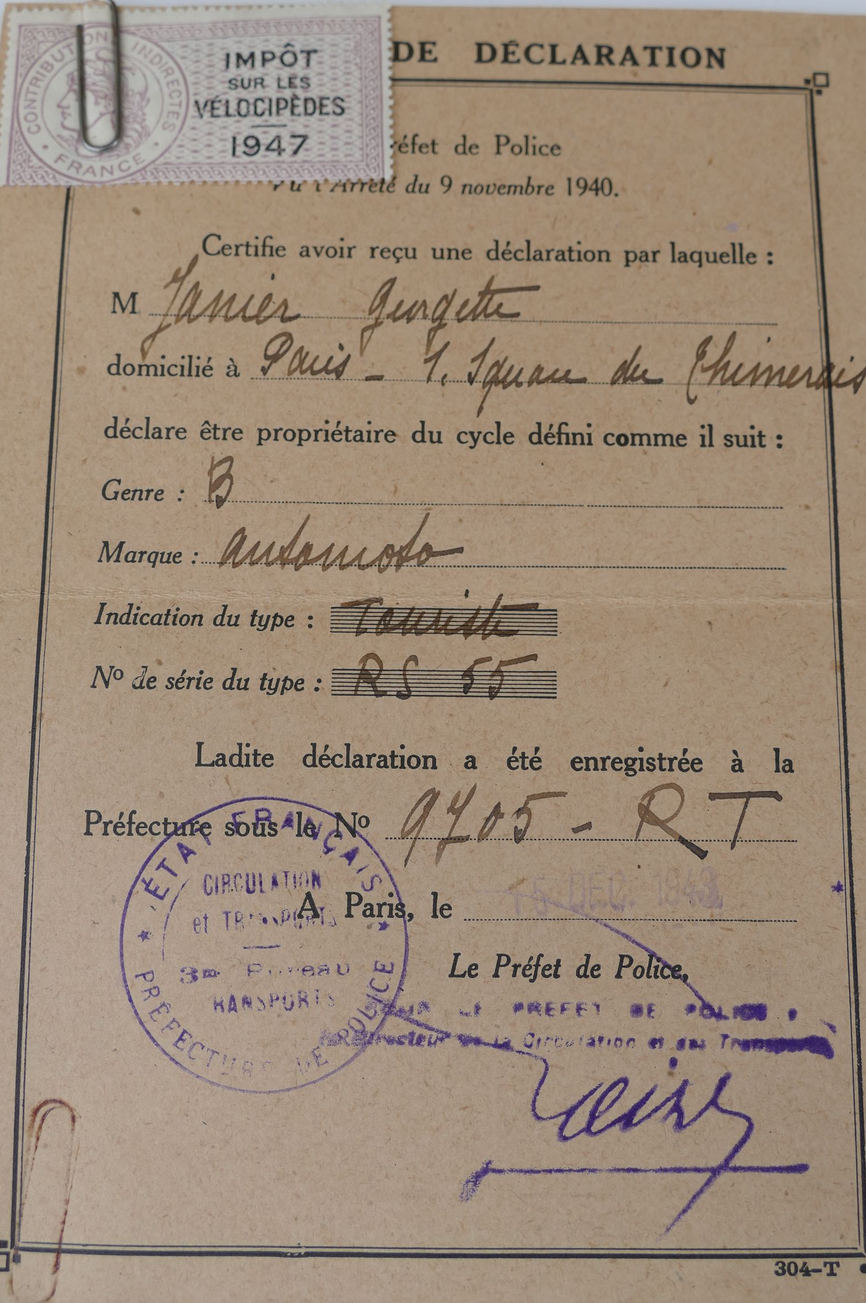 CONTRIBUTIONS INDIRECTES
FRANCE
IMPÔT
SUR LES
VÉLOCIPÈDES
1947
DE DÉCLARATION
éfet de Police
l'Arrêté du 9 novembre 1940.
Certifie avoir reçu une déclaration par laquelle :
M Janier Georgette
domicilié à Paris - 1. Square du Thimerais
déclare être propriétaire du cycle défini comme il suit :
Genre : B
Marque : Automoto
Indication du type : Touriste
No de série du type : RS 55
Ladite déclaration a été enregistrée à la
Préfecture sous le No 9705 - RT
A Paris, le 15 DEC. 1943
Le Préfet de Police,
LE PREFET DE POLICE
Directeur de la Circulation et des Transports
ÉTAT FRANÇAIS
CIRCULATION
et TRANSPORTS
3me Bureau
TRANSPORTS
PRÉFECTURE DE POLICE
304-T